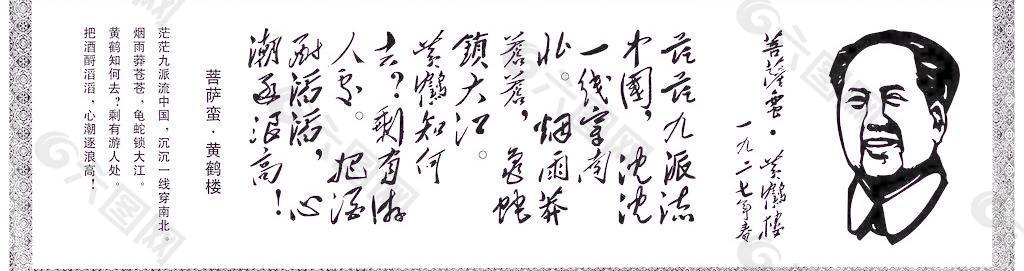 菩薩蛮·黄鶴楼
一九二七年春
茫茫九派流
中國，沈沈
一线穿南
北。烟雨莽
蒼蒼，龟蛇
鎖大江。
黄鶴知何
去？剩有游
人处。把酒
酹滔滔，心
潮逐浪高！
菩萨蛮·黄鹤楼
茫茫九派流中国，沉沉一线穿南北。
烟雨莽苍苍，龟蛇锁大江。
黄鹤知何去？剩有游人处。
把酒酹滔滔，心潮逐浪高！
六图网